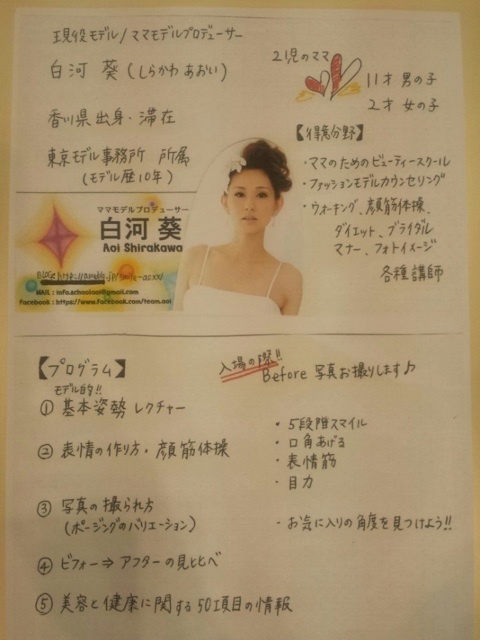 現役モデル/ママモデルプロデューサー
白河 葵(しらかわ あおい)
香川県出身・滞在
東京モデル事務所 所属
(モデル歴10年)
2児のママ
11才 男の子
2才 女の子
【得意分野】
・ママのためのビューティースクール
・ファッションモデルカウンセリング
・ウォーキング、顔筋体操、
ダイエット、ブライダル
マナー、フォトイメージ
各種講師
ママモデルプロデューサー
白河 葵
Aoi Shirakawa
MAIL : info.schoolaoi@gmail.com
Facebook : https://www.facebook.com/team.aoi
【プログラム】
モデル的!!
入場の際!!
Before 写真お撮りします♪
① 基本姿勢 レクチャー
② 表情の作り方・顔筋体操
・5段階スマイル
・口角あげる
・表情筋
・目力
③ 写真の撮られ方
(ポージングのバリエーション)
・お気に入りの角度を見つけよう!!
④ ビフォー⇒アフターの見比べ
⑤ 美容と健康に関する50項目の情報